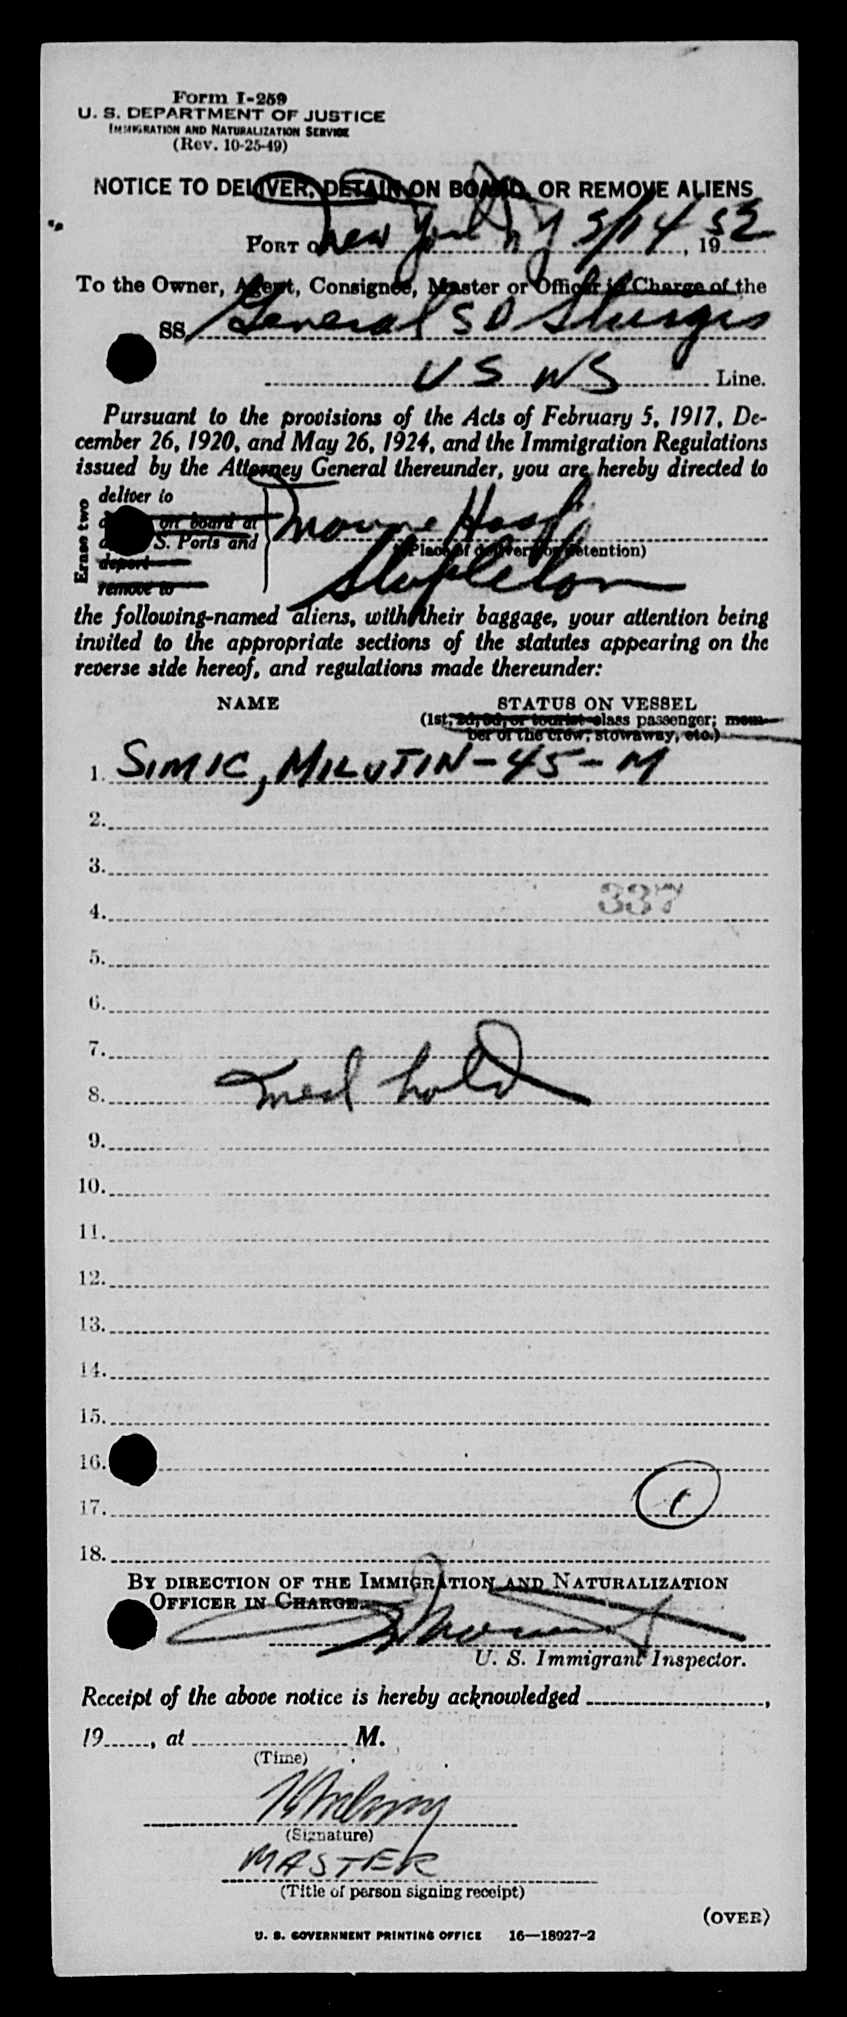 Form I-259
U. S. DEPARTMENT OF JUSTICE
IMMIGRATION AND NATURALIZATION SERVICE
(Rev. 10-25-49)
NOTICE TO DELIVER, DETAIN ON BOARD, OR REMOVE ALIENS
PORT OF New York N Y 5/14, 1952
To the Owner, Agent, Consignee, Master or Officer in Charge of the
SS General S D Sturgis
US NS Line.
Pursuant to the provisions of the Acts of February 5, 1917, De-
cember 26, 1920, and May 26, 1924, and the Immigration Regulations
issued by the Attorney General thereunder, you are hereby directed to
Erase two
deliver to
on board at
S. Ports and
deport
remove to
Marine Hosp
(Place of delivery or detention)
Stapleton
the following-named aliens, with their baggage, your attention being
invited to the appropriate sections of the statutes appearing on the
reverse side hereof, and regulations made thereunder:
NAME STATUS ON VESSEL
(1st, 2d, 3d, or tourist-class passenger; mem-
ber of the crew, stowaway, etc.)
1. SIMIC, MILUTIN - 45 - M
2.
3.
4. 337
5.
6.
7.
8. med hold
9.
10.
11.
12.
13.
14.
15.
16.
17. 1
18.
BY DIRECTION OF THE IMMIGRATION AND NATURALIZATION
OFFICER IN CHARGE.
U. S. Immigrant Inspector.
Receipt of the above notice is hereby acknowledged ,
19 , at M.
(Time)
(Signature)
MASTER
(Title of person signing receipt)
(OVER)
U. S. GOVERNMENT PRINTING OFFICE 16—18927-2